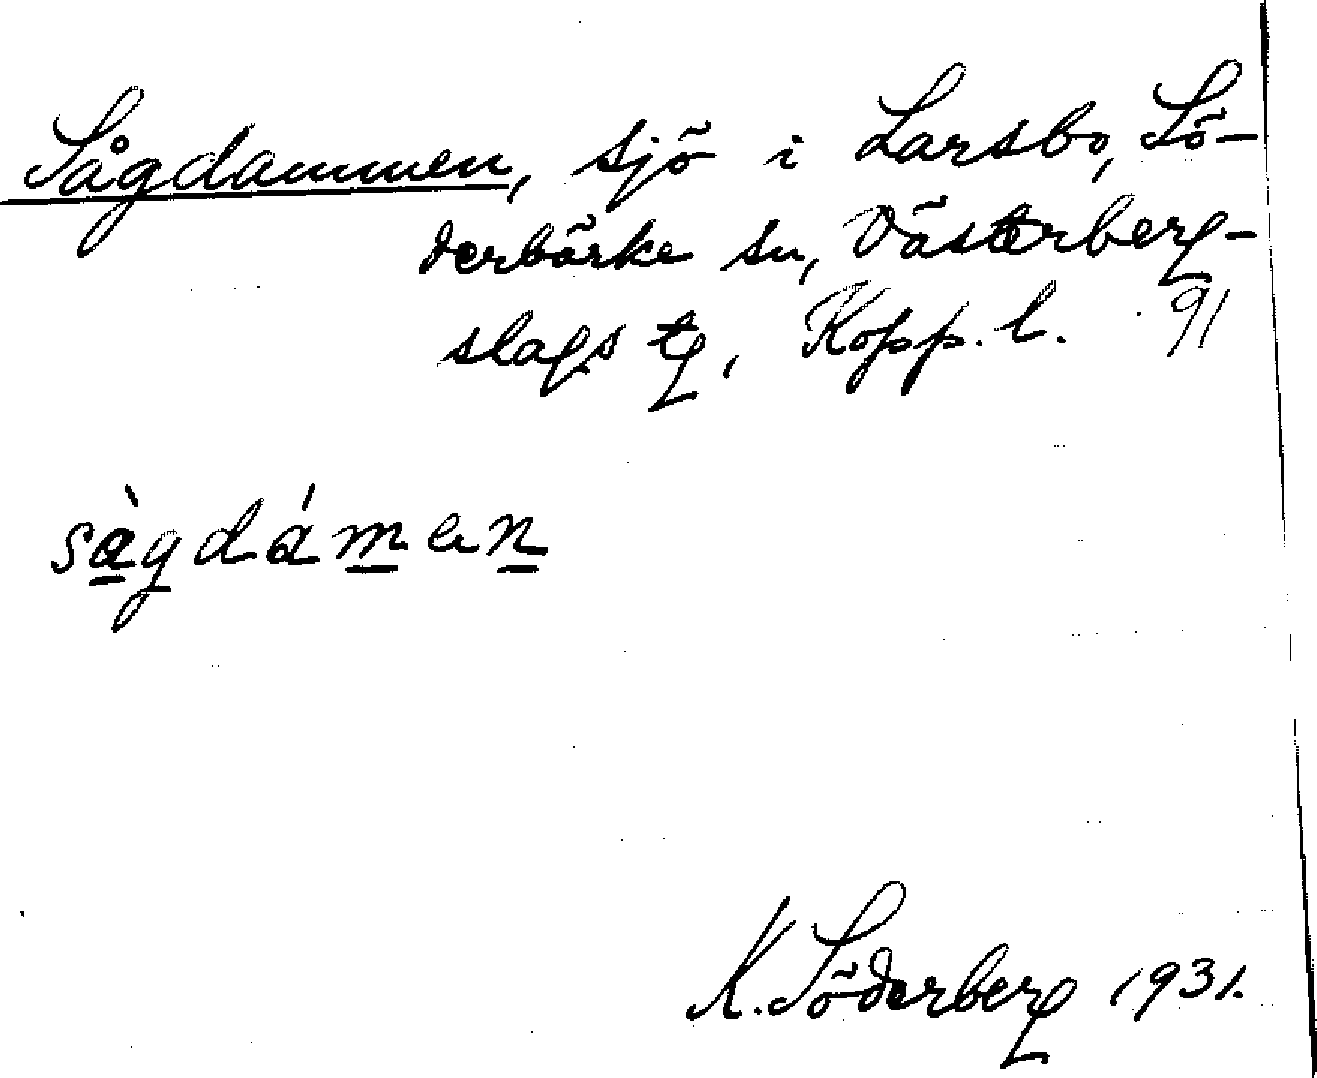 Sågdammen, sjö i Larsbo, Sö-
derbärke sn, Västerberg-
slags tg, Kopp. l. 91
sàgdámen
K. Söderberg 1931.